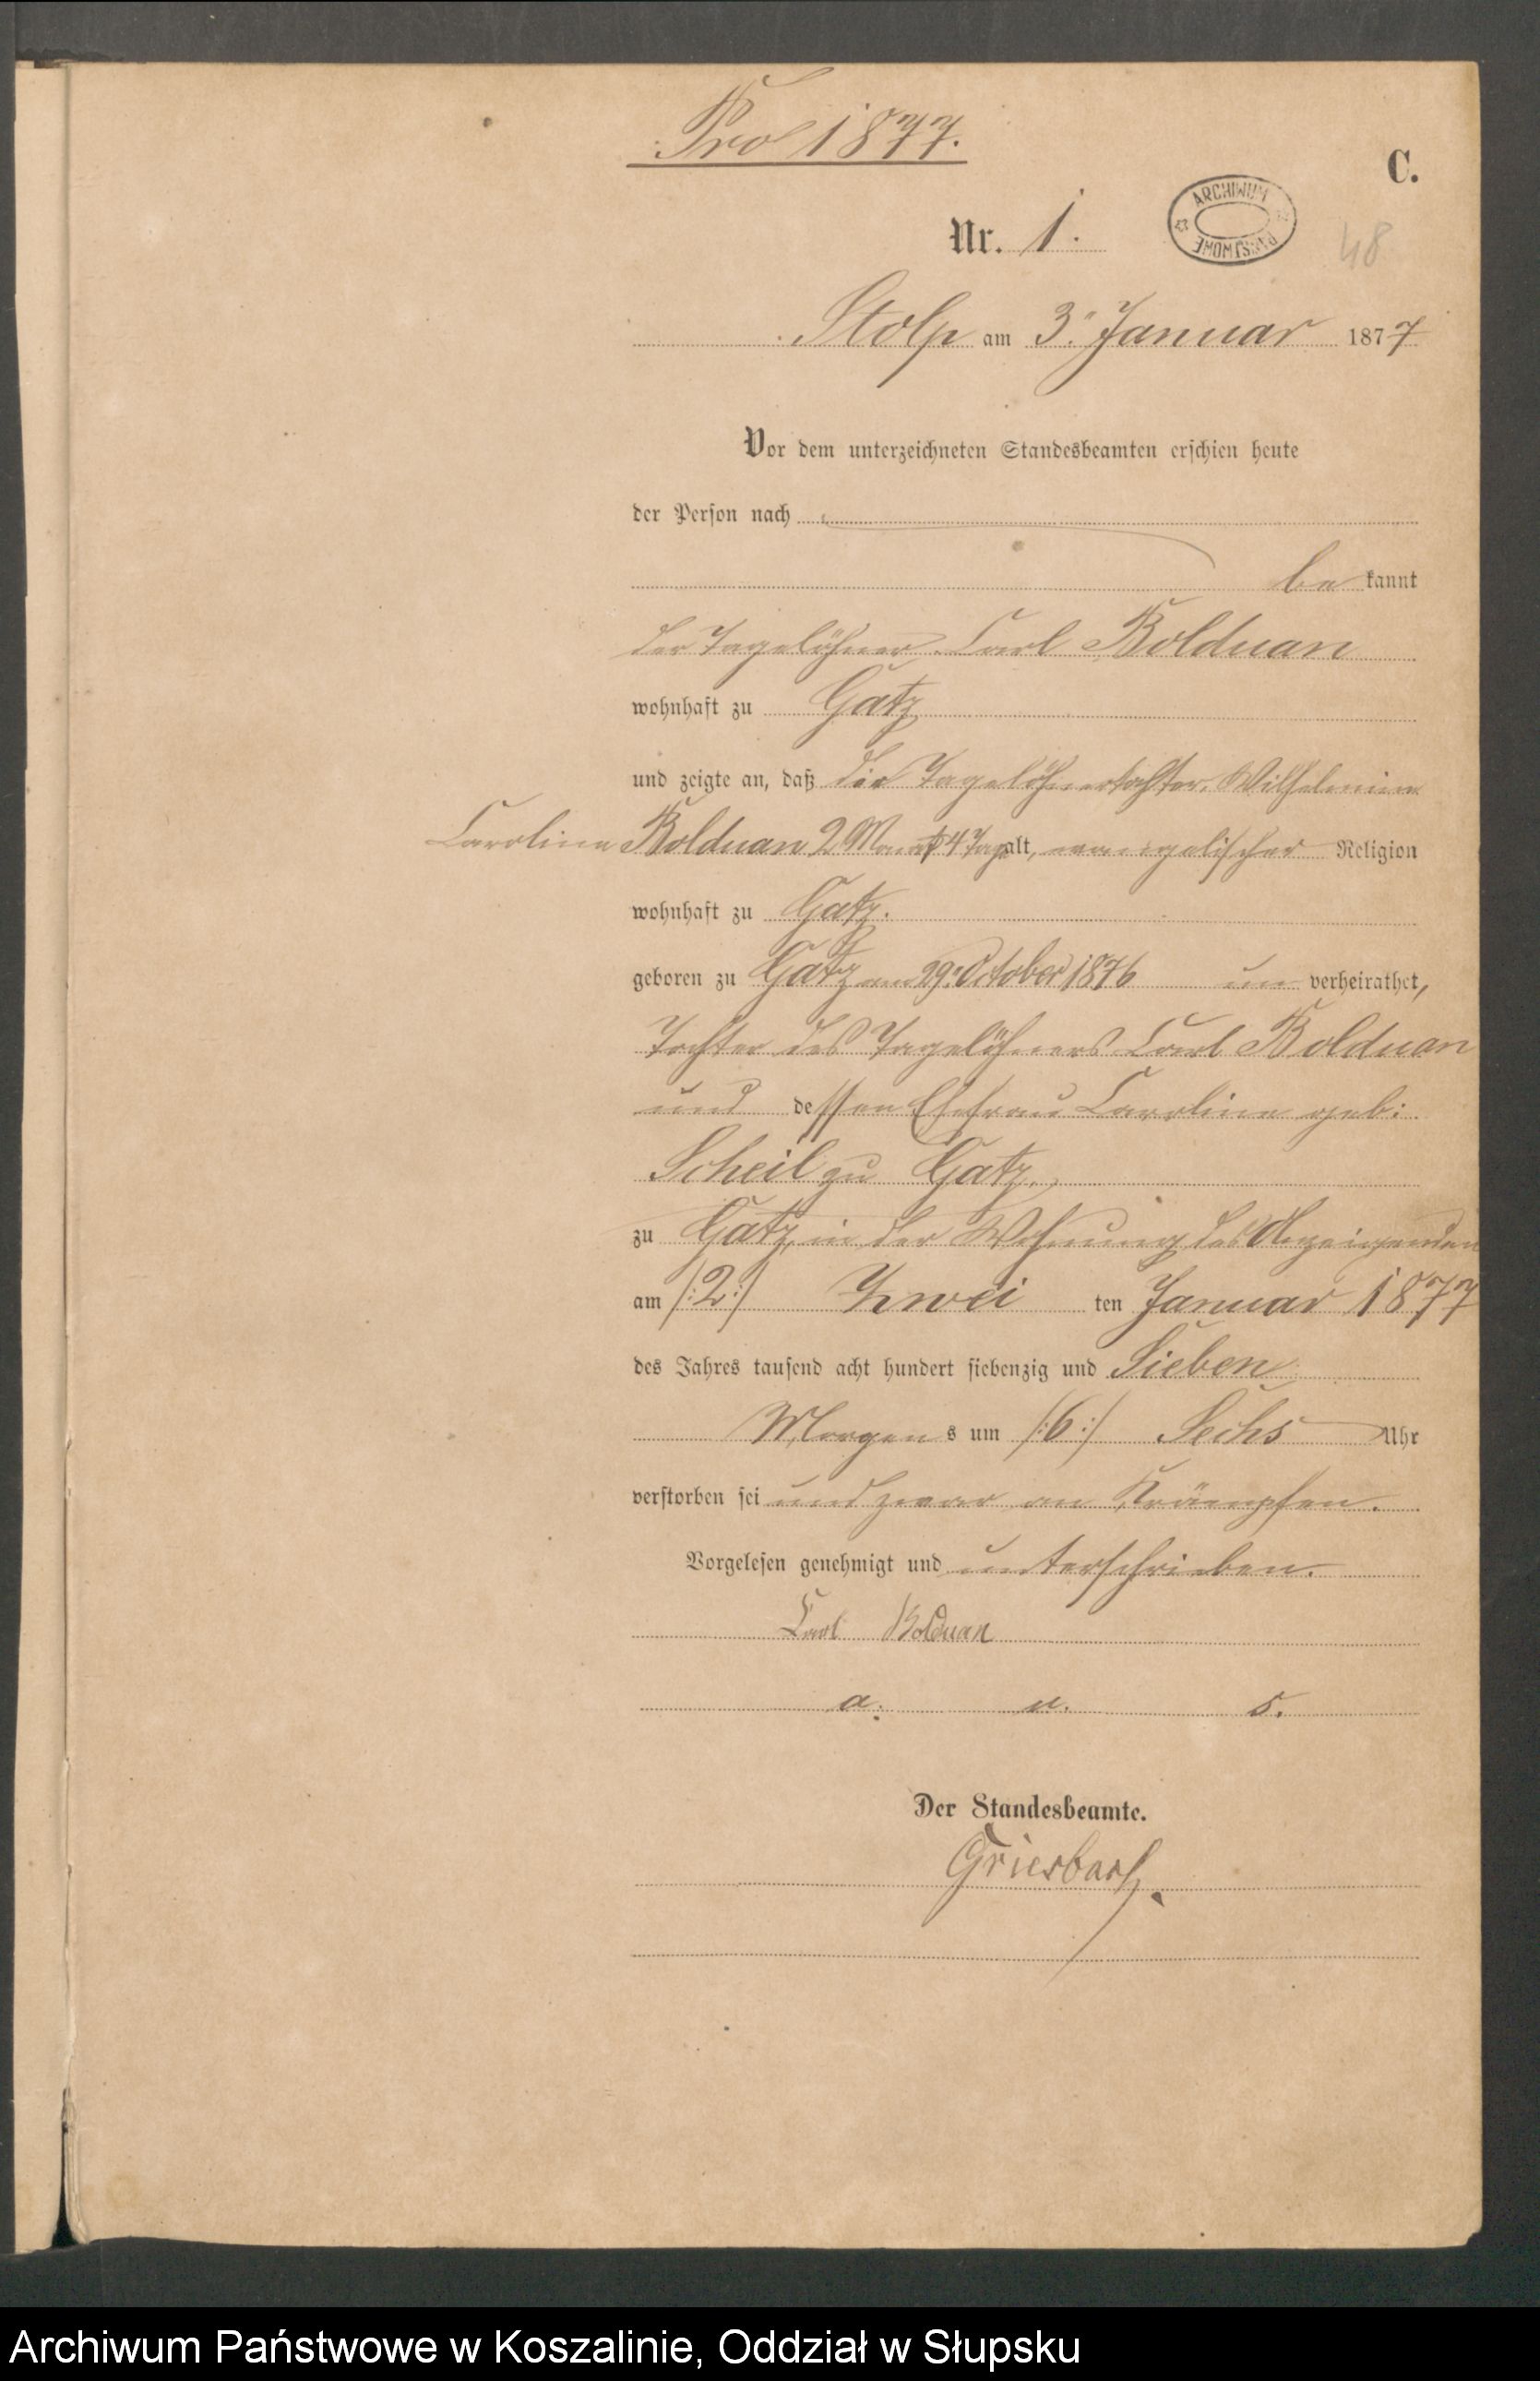 Pro 1877.
C.
Nr. 1.
ARCHIWUM PAŃSTWOWE
48
Stolp am 3. Januar 1877
Vor dem unterzeichneten Standesbeamten erschien heute
der Person nach
be kannt
der Tagelöhner Carl Bolduan
wohnhaft zu Gatz
und zeigte an, daß die Tagelöhnertochter, Wilhelmine
Caroline Bolduan 2 Monat 4 Tage alt, evangelischer Religion
wohnhaft zu Gatz.
geboren zu Gatz am 29. October 1876 un verheirathet,
Tochter des Tagelöhners Carl Bolduan
und dessen Ehefrau Caroline geb:
Scheil zu Gatz,
zu Gatz, in der Wohnung des Anzeigenden
am /:2:/ Zwei ten Januar 1877
des Jahres tausend acht hundert siebenzig und Sieben
Morgens um /:6:/ Sechs Uhr
verstorben sei und zwar an Krämpfen.
Vorgelesen genehmigt und unterschrieben.
Carl Bolduan
a. u. s.
Der Standesbeamte.
Griesbach.
Archiwum Państwowe w Koszalinie, Oddział w Słupsku